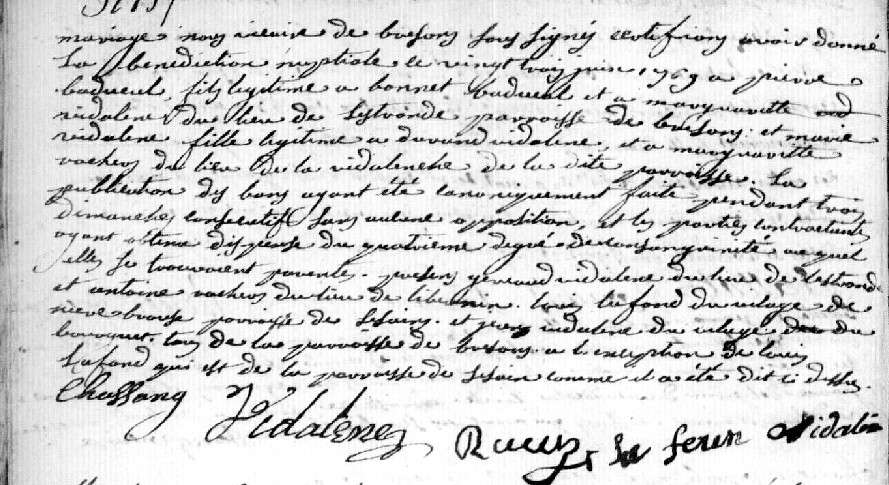 mariage nous vicaire de bresons sous signé certifions avoir donné
la benediction nuptiale le vingt trois juin 1769 a pierre
badueul, fils legitime a bonnet badueul et a marguaritte
vidalene du lieu de lestronde parroisse de bresons. et marie
vidalene fille legitime a durand vidalene, et a marguaritte
vachers du lieu de la vidalenche de la dite parroisse. la
publication des bans ayant été canoniquement faite pendant trois
dimanches consecutifs sans aucune opposition, et les parties contractantes
ayant obtenu dispense du quatrieme degré de consanguinité auquel
elles se trouvoient parentes. presens geraud vidalene du lieu de lestronde
et antoine vachers du lieu de louis lafond du village de
brousse parroisse de et vidalene du vilage du
bourguet. tous de la parroisse de bresons a l'exception de louis
lafond qui est de la parroisse de comme il a été dit ci dessus.
Chassang Vidalenc vidalin